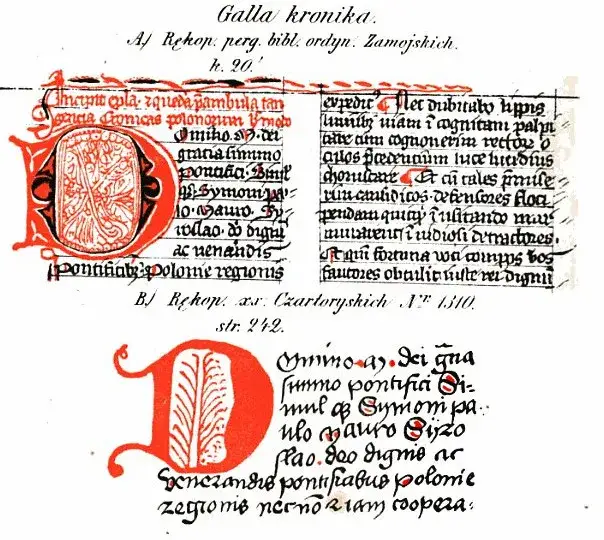 Galla kronika.
A) Rękop. perg. bibl. ordyn. Zamojskich.
k. 20.
Incipit epla. & queda pambula tan
gracia Cronicas polonorum
Domino. M. dei
gracia summo
pontifici. Simul
qȝ. Symoni pa
lo. Mauro. Sy
do digni
ac venandis
Pontificibȝ. Polonie regionis
expedict. Nec dubitabo lippis
luminibȝ viam ī cognitam palpi
tare cum cognouerim rectorꝝ o
culos p̄cedencium luce lucidius
choruscare. Et cū tales p̄mise
rim causidicos. defensores floci
pendam quicqͥd ī usitando mur
murauerint ī uidiosi detractores.
Et qm̄ fortuna voti compos vos
fautores obtulit iuste rei dignū
B) Rękop. xv. Czartoryskich Nr. 1310.
str. 242.
Domino M. dei gr̄na
summo pontifici Si-
mul qȝ Symoni pa-
ulo Mauro Syro
slao. deo dignis ac
venerandis pontificibus polonie
regionis nec nō ꝛ iam coopera-